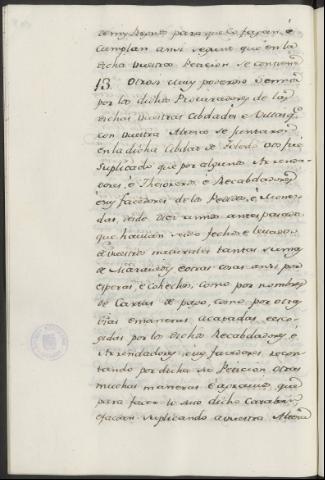 de mys Reynos para que lo fagan, é
cumplan ansi segunt que en la
dicha vuestra Peticion se contiene
13. Otrosi muy poderoso Señor
por los dichos Procuradores de las
dichas vuestras Cibdades é Villas qᵉ
con vuestra Alteza se juntaron
en la dicha Cibdat de Toledo vos fue
suplicado que por algunos Arrenda-
dores, é Thesoreros é Recabdadores
é sus facedores de los Pedidos, é Mone-
das, desde diez annos antes pasados
que havian sydo fechos é levados
á vuestros naturales tantas sumas
de Maravedis é otras cosas ansi por
esperas, é cohechos, como por nombres
de Cartas de pago, como por otras
vias é maneras acatadas, é esco-
gidas por los dichos Recabdadores, é
Arrendadores, é sus facedores, recon-
tando por dicha su Peticion otras
muchas maneras é agravios, que
para facer lo suso dicho cataban,
é facian suplicando a vuestra Alteza